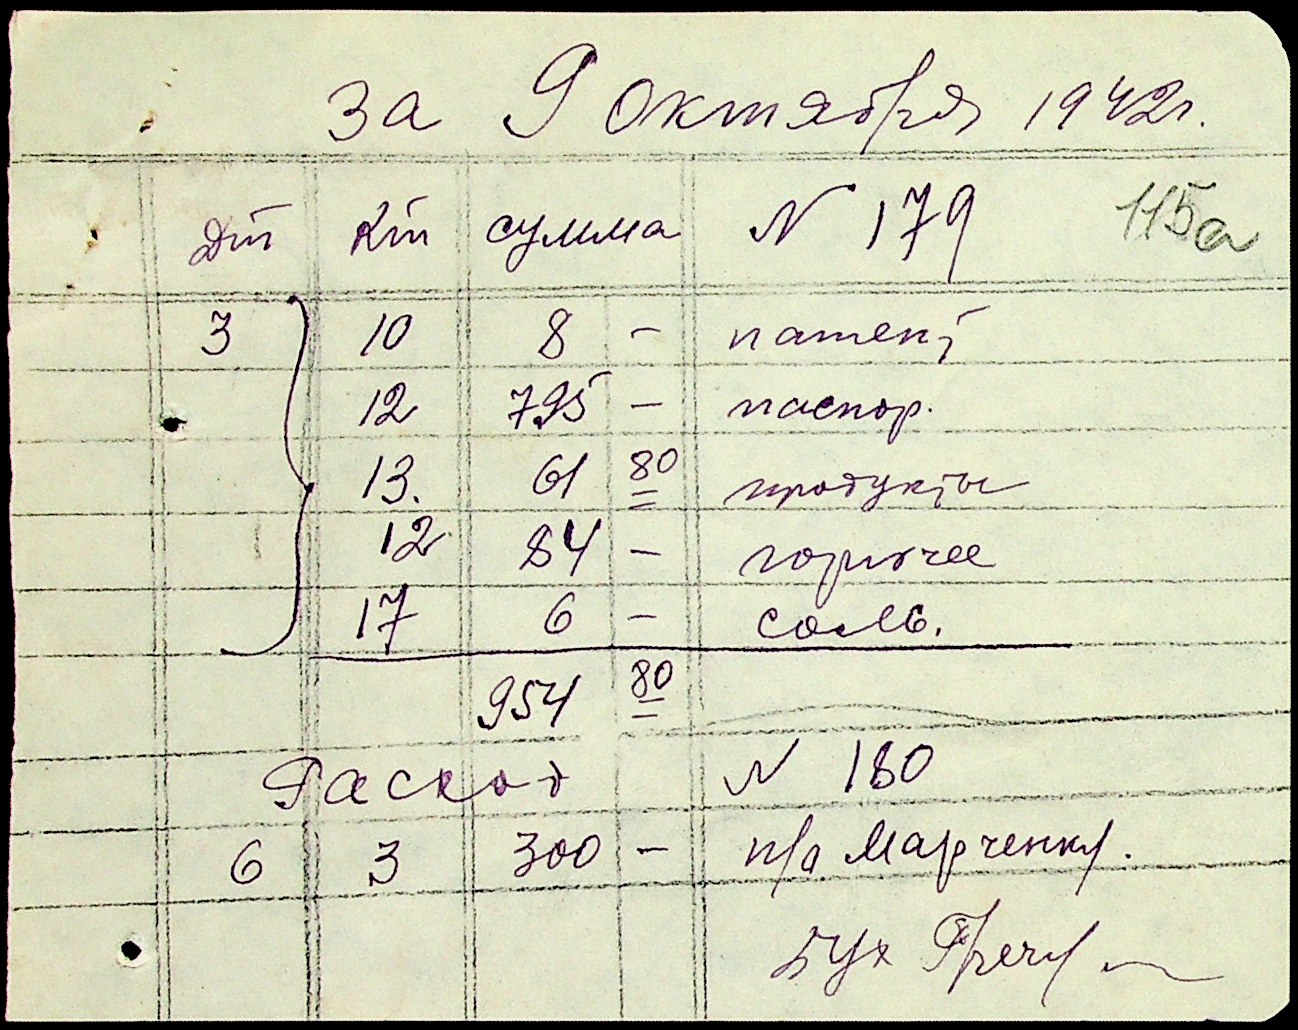 за 9 октября 1942г.
Дт Кт сумма N 179 115а
3 10 8 — патент
12 795 — паспор.
13. 61 80 продукты
12 84 — горючее
17 6 — соль.
954 80
Расход N 180
6 3 300 — п/о Марченку.
Бух